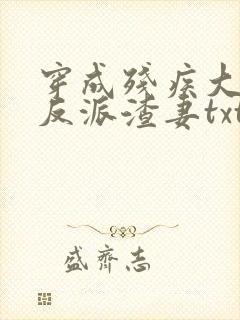 穿成残疾大
反派渣妻txt
盛齐志